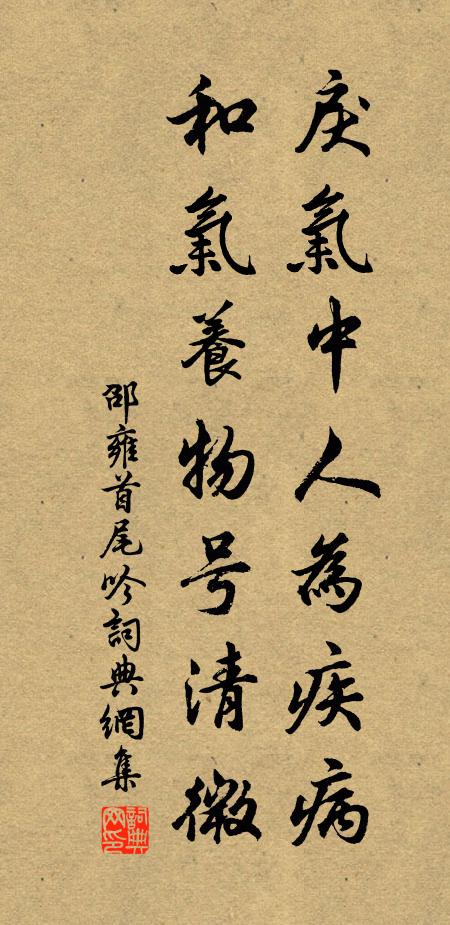 戾氣中人為疾病
和氣養物号清微
邵雍首尾吟詞典網集
詞典网印